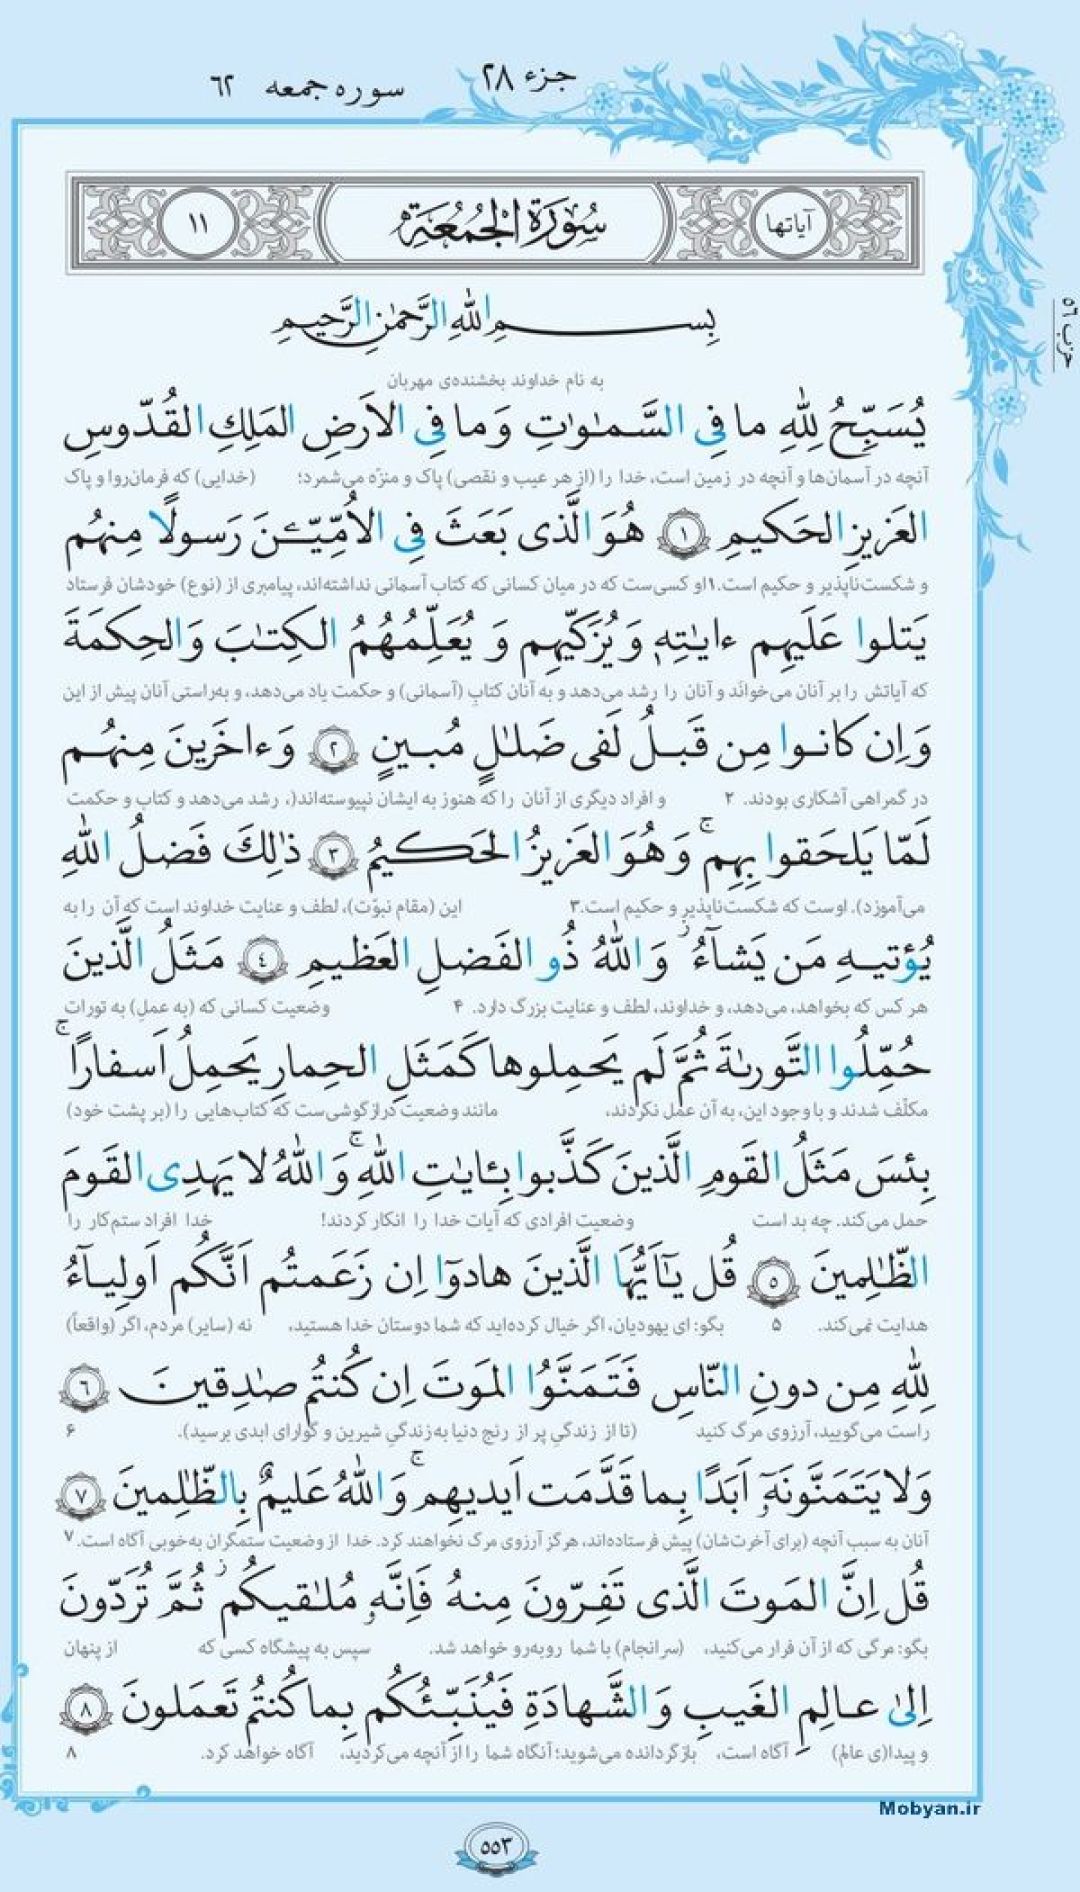 جزء ۲۸
سوره جمعه ۶۲
حزب ۵۶
آیاتها
سُورَةُ الْجُمُعَةِ
۱۱
بِسمِ اللهِ الرَّحمٰنِ الرَّحیمِ
به نام خداوند بخشنده‌ی مهربان
یُسَبِّحُ لِلّٰهِ ما فِی السَّمٰوٰتِ وَ ما فِی الاَرضِ المَلِكِ القُدّوسِ
آنچه در آسمان‌ها و آنچه در زمین است، خدا را (از هر عیب و نقصی) پاک و منزّه می‌شمرد؛ (خدایی) که فرمان‌روا و پاک
العَزیزِ الحَكیمِ ﴿۱﴾ هُوَ الَّذی بَعَثَ فِی الاُمِّیّـٖنَ رَسولًا مِنهُم
و شکست‌ناپذیر و حکیم است.۱ او کسی‌ست که در میان کسانی که کتاب آسمانی نداشته‌اند، پیامبری از (نوع) خودشان فرستاد
یَتلوا عَلَیهِم ءایٰتِهٖ وَ یُزَكّیهِم وَ یُعَلِّمُهُمُ الكِتٰبَ وَ الحِكمَةَ
که آیاتش را بر آنان می‌خوانَد و آنان را رشد می‌دهد و به آنان کتابِ (آسمانی) و حکمت یاد می‌دهد، و به‌راستی آنان پیش از این
وَ اِن كانوا مِن قَبلُ لَفی ضَلٰلٍ مُبینٍ ﴿۲﴾ وَ ءاخَرینَ مِنهُم
در گمراهی آشکاری بودند. ۲ و افراد دیگری از آنان را که هنوز به ایشان نپیوسته‌اند(، رشد می‌دهد و کتاب و حکمت
لَمّا یَلحَقوا بِهِم ۚ وَ هُوَ العَزیزُ الحَكیمُ ﴿۳﴾ ذٰلِكَ فَضلُ اللهِ
می‌آموزد). اوست که شکست‌ناپذیر و حکیم است.۳ این (مقام نبوّت)، لطف و عنایت خداوند است که آن را به
یُؤتیهِ مَن یَشآءُ ۚ وَ اللهُ ذُو الفَضلِ العَظیمِ ﴿٤﴾ مَثَلُ الَّذینَ
هر کس که بخواهد، می‌دهد، و خداوند، لطف و عنایت بزرگ دارد. ۴ وضعیت کسانی که (به عملِ) به تورات
حُمِّلُوا التَّورىٰةَ ثُمَّ لَم یَحمِلوها كَمَثَلِ الحِمارِ یَحمِلُ اَسفارًا ۚ
مکلّف شدند و با وجود این، به آن عمل نکردند، مانند وضعیت درازگوشی‌ست که کتاب‌هایی را (بر پشت خود)
بِئسَ مَثَلُ القَومِ الَّذینَ كَذَّبوا بِـٔایٰتِ اللهِ ۚ وَ اللهُ لا یَهدِی القَومَ
حمل می‌کند. چه بد است وضعیت افرادی که آیات خدا را انکار کردند! خدا افراد ستم‌کار را
الظّٰلِمینَ ﴿۵﴾ قُل یٰٓاَیُّهَا الَّذینَ هادوٓا اِن زَعَمتُم اَنَّكُم اَولِیآءُ
هدایت نمی‌کند. ۵ بگو: ای یهودیان، اگر خیال کرده‌اید که شما دوستان خدا هستید، نه (سایر) مردم، اگر (واقعاً)
لِلّٰهِ مِن دونِ النّاسِ فَتَمَنَّوُا المَوتَ اِن كُنتُم صٰدِقینَ ﴿٦﴾
راست می‌گویید، آرزوی مرگ کنید (تا از زندگیِ پر از رنج دنیا به زندگیِ شیرین و گوارای ابدی برسید). ۶
وَ لا یَتَمَنَّونَهٗٓ اَبَدًا بِما قَدَّمَت اَیدیهِم ۚ وَ اللهُ عَلیمٌ بِالظّٰلِمینَ ﴿۷﴾
آنان به سبب آنچه (برای آخرت‌شان) پیش فرستاده‌اند، هرگز آرزوی مرگ نخواهند کرد. خدا از وضعیت ستمگران به‌خوبی آگاه است. ۷
قُل اِنَّ المَوتَ الَّذی تَفِرّونَ مِنهُ فَاِنَّهٗ مُلٰقیكُم ۖ ثُمَّ تُرَدّونَ
بگو: مرگی که از آن فرار می‌کنید، (سرانجام) با شما روبه‌رو خواهد شد. سپس به پیشگاه کسی که از پنهان
اِلىٰ عالِمِ الغَیبِ وَ الشَّهادَةِ فَیُنَبِّئُكُم بِما كُنتُم تَعمَلونَ ﴿۸﴾
و پیدا(ی عالم) آگاه است، بازگردانده می‌شوید؛ آنگاه شما را از آنچه می‌کردید، آگاه خواهد کرد. ۸
Mobyan.ir
۵۵۳